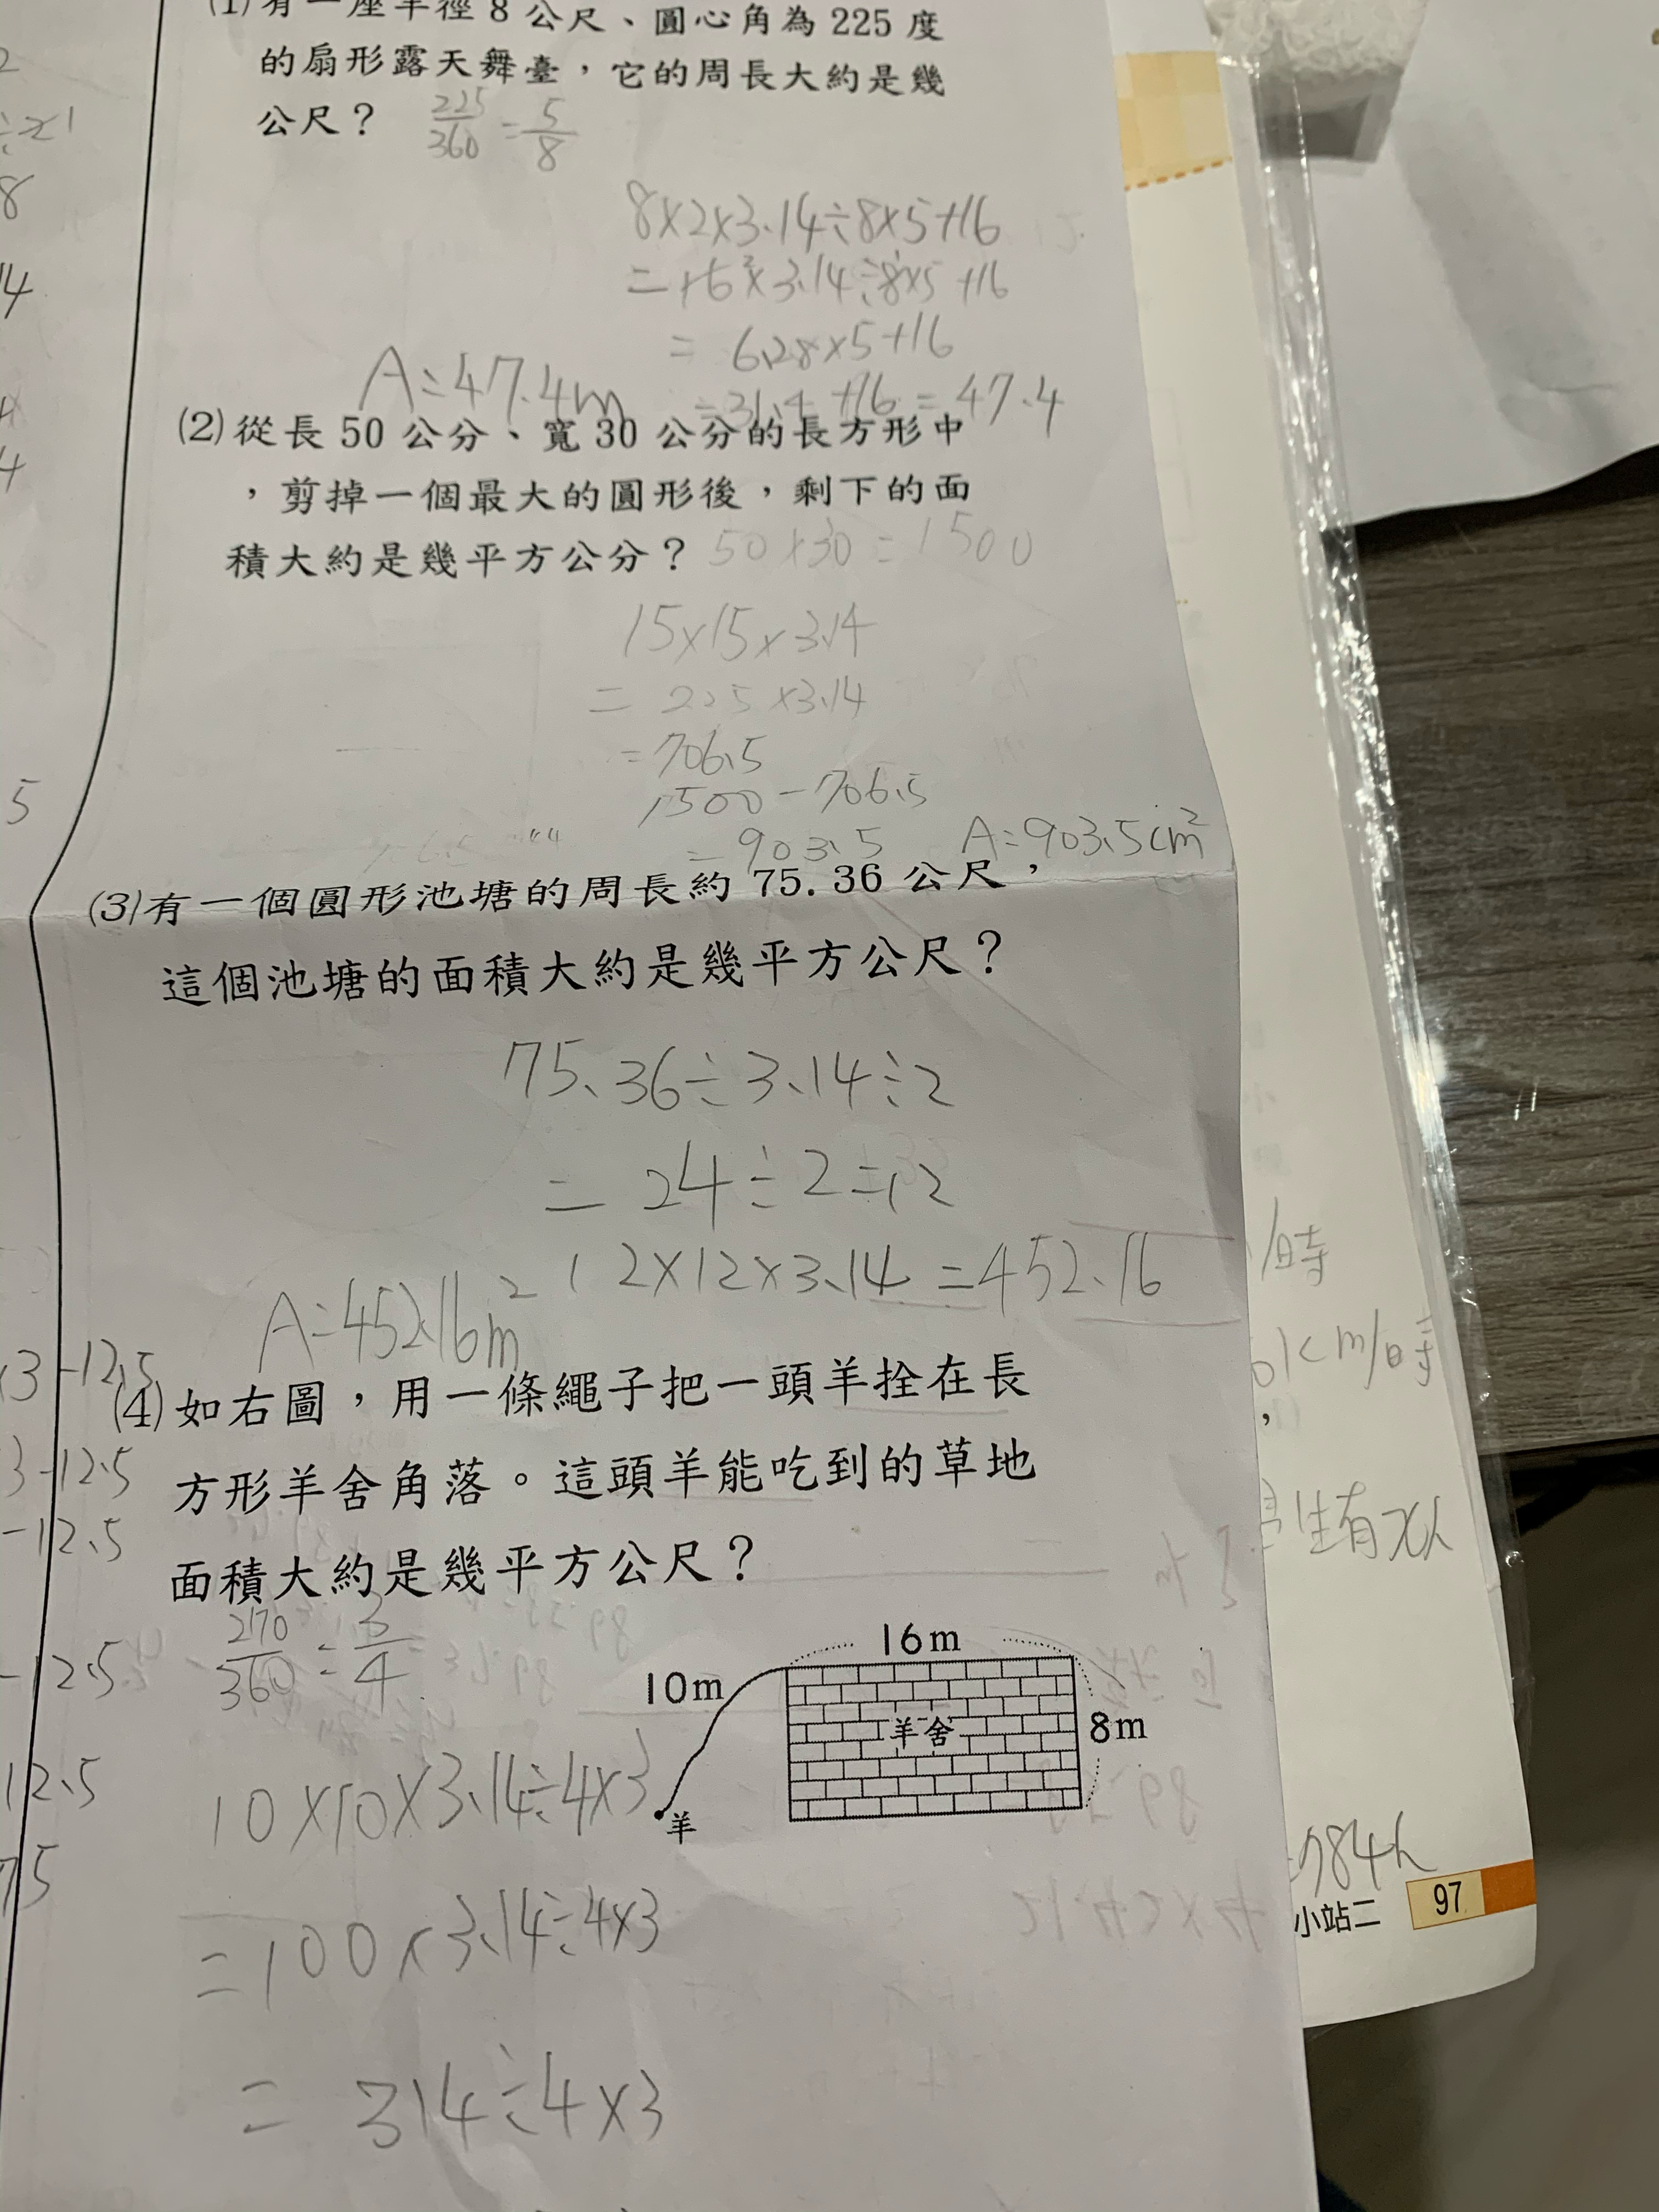 (1)有一座半徑 8 公尺、圓心角為 225 度
的扇形露天舞臺，它的周長大約是幾
公尺？ 225/360 = 5/8
8×2×3.14÷8×5+16
= 16×3.14÷8×5+16
= 6.28×5+16
= 31.4+16 = 47.4
A:47.4m
(2)從長 50 公分、寬 30 公分的長方形中
，剪掉一個最大的圓形後，剩下的面
積大約是幾平方公分？ 50×30=1500
15×15×3.14
= 225×3.14
=706.5
1500-706.5
=903.5 A:903.5cm²
(3)有一個圓形池塘的周長約 75.36 公尺，
這個池塘的面積大約是幾平方公尺？
75.36÷3.14÷2
= 24÷2=12
12×12×3.14=452.16
A:452.16m²
(4)如右圖，用一條繩子把一頭羊拴在長
方形羊舍角落。這頭羊能吃到的草地
面積大約是幾平方公尺？
270/360 = 3/4
16m
10m
羊舍
8m
羊
10×10×3.14÷4×3
=100×3.14÷4×3
= 314÷4×3
8
14
5
3-12.5
3-12.5
-12.5
-12.5
12.5
75
/時
km/時
，
生有
784
小站二 97